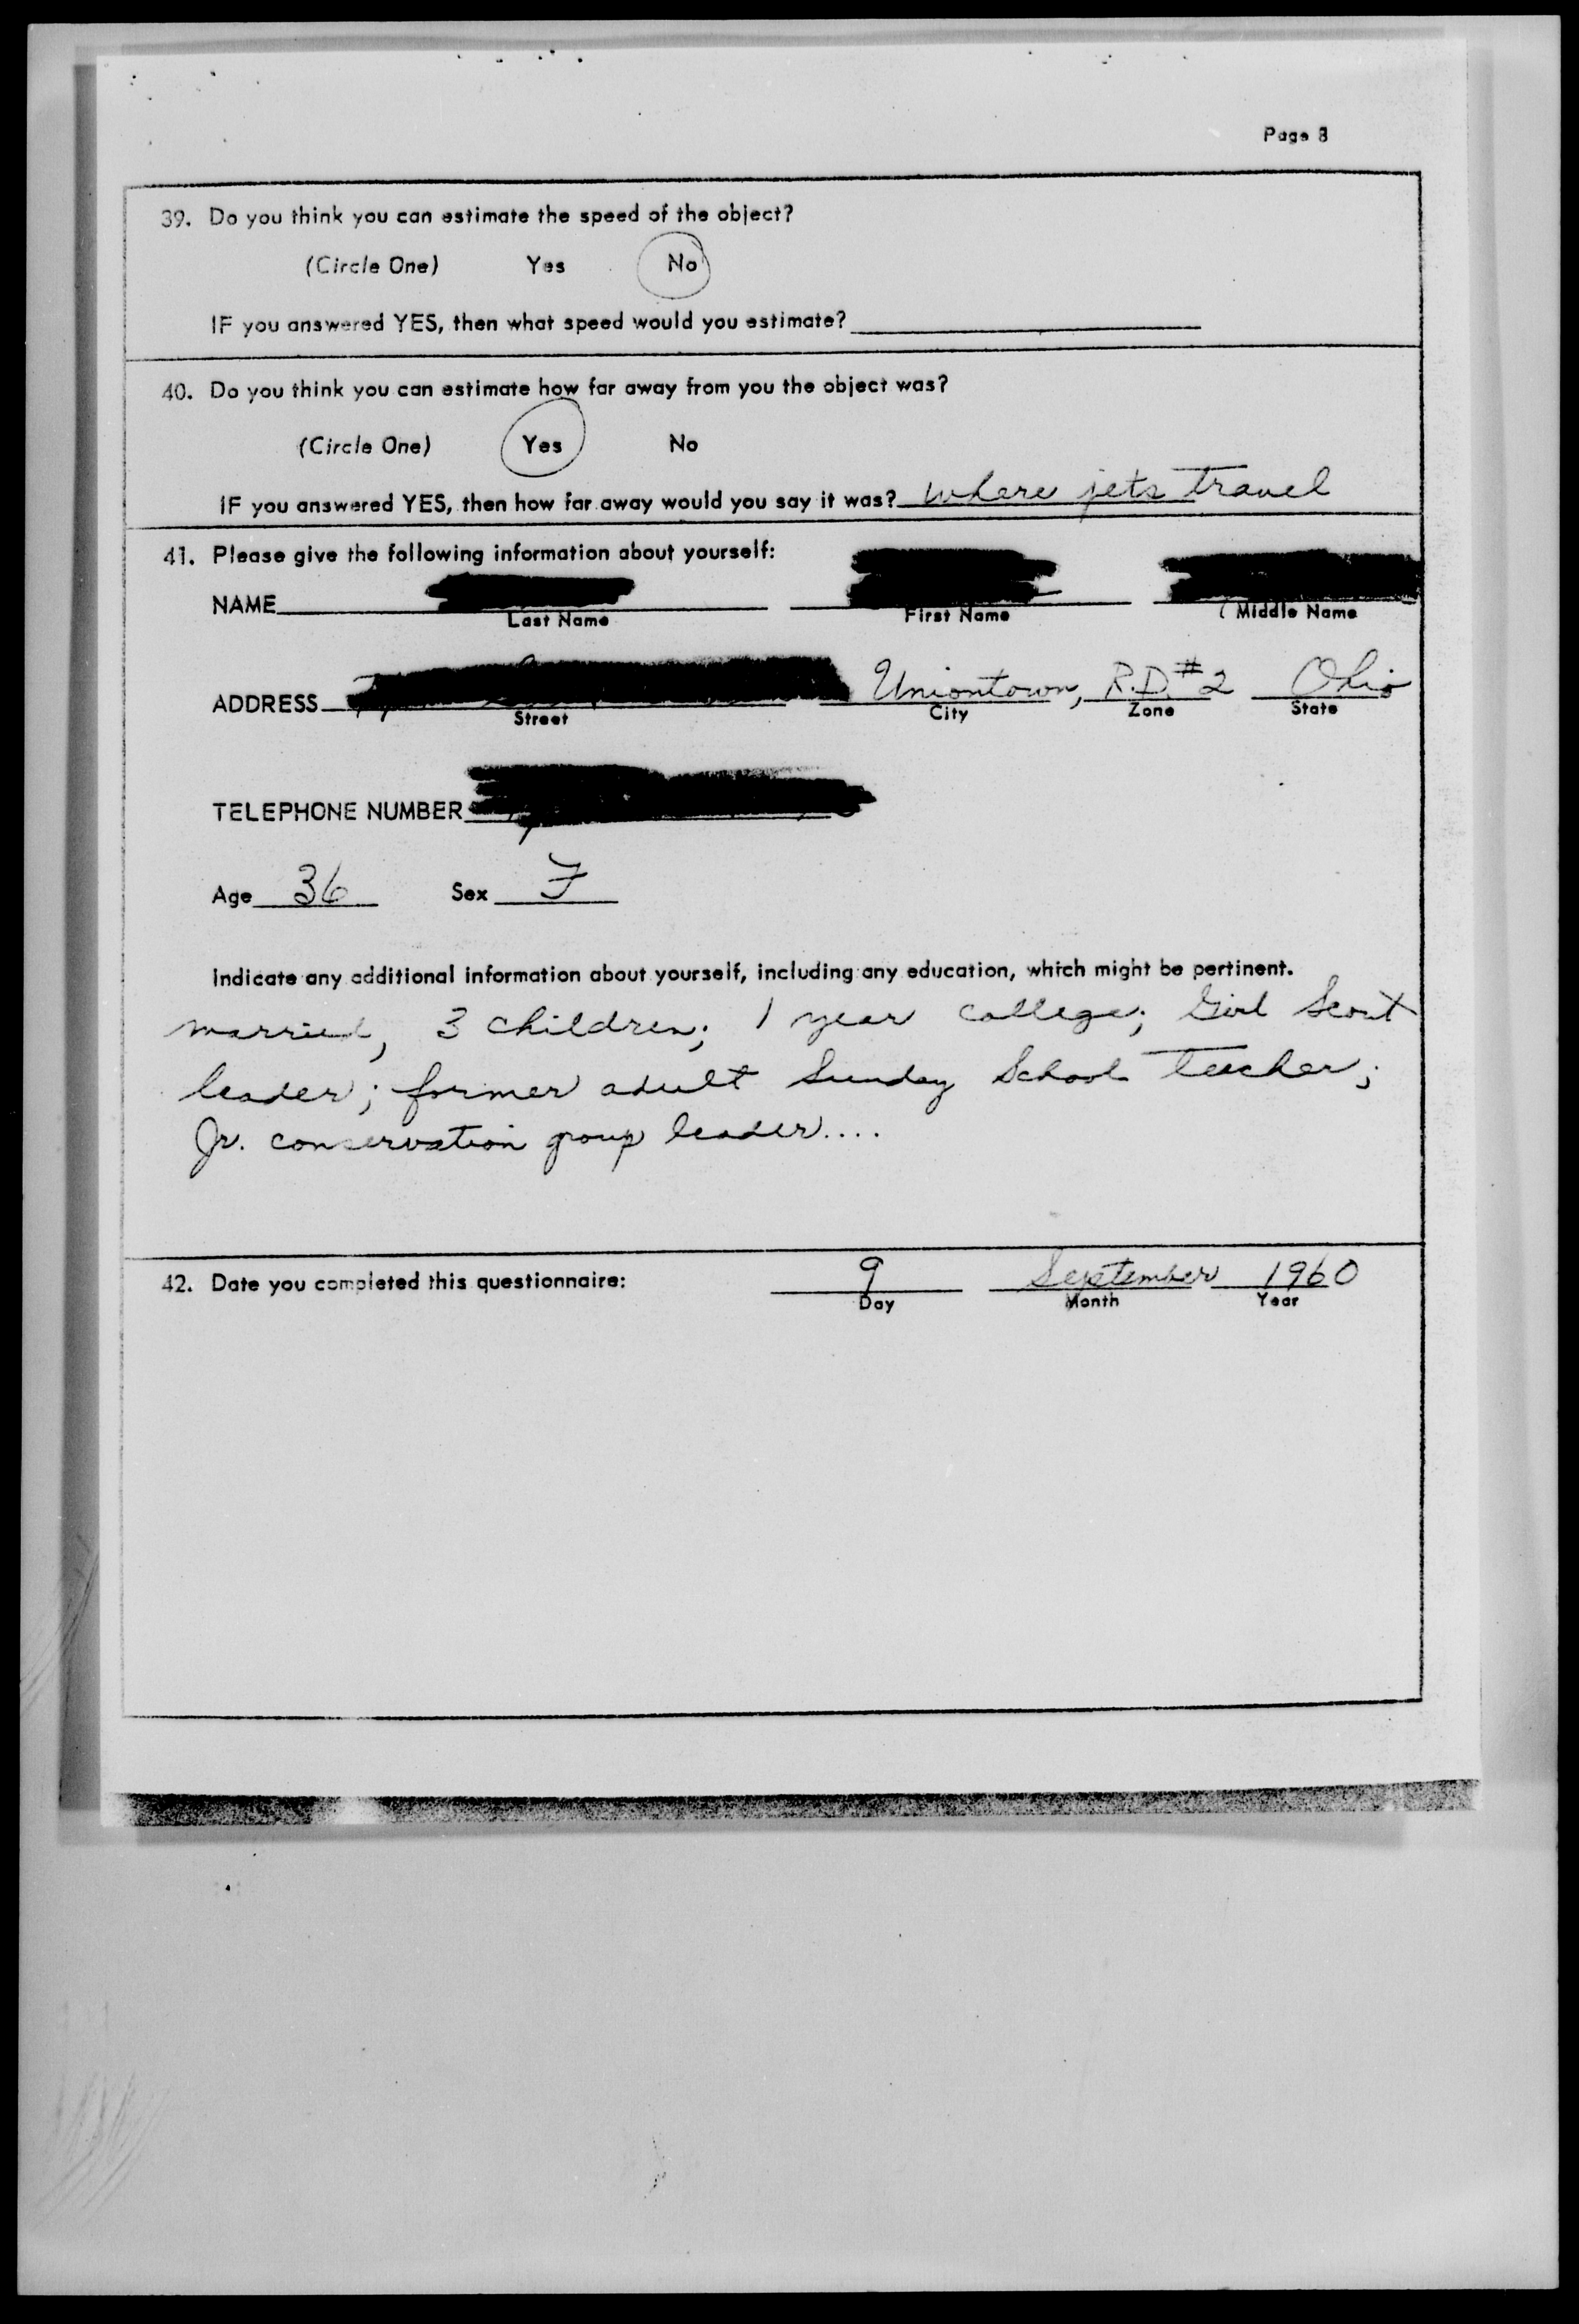 Page 8
39. Do you think you can estimate the speed of the object?
(Circle One) Yes No
IF you answered YES, then what speed would you estimate?
40. Do you think you can estimate how far away from you the object was?
(Circle One) Yes No
IF you answered YES, then how far away would you say it was? where jets travel
41. Please give the following information about yourself:
NAME
Last Name First Name Middle Name
ADDRESS Uniontown, R.D. #2 Ohio
Street City Zone State
TELEPHONE NUMBER
Age 36 Sex F
Indicate any additional information about yourself, including any education, which might be pertinent.
married, 3 children; 1 year college; Girl Scout
leader; former adult Sunday School teacher;
Jr. conservation group leader....
42. Date you completed this questionnaire: 9 September 1960
Day Month Year